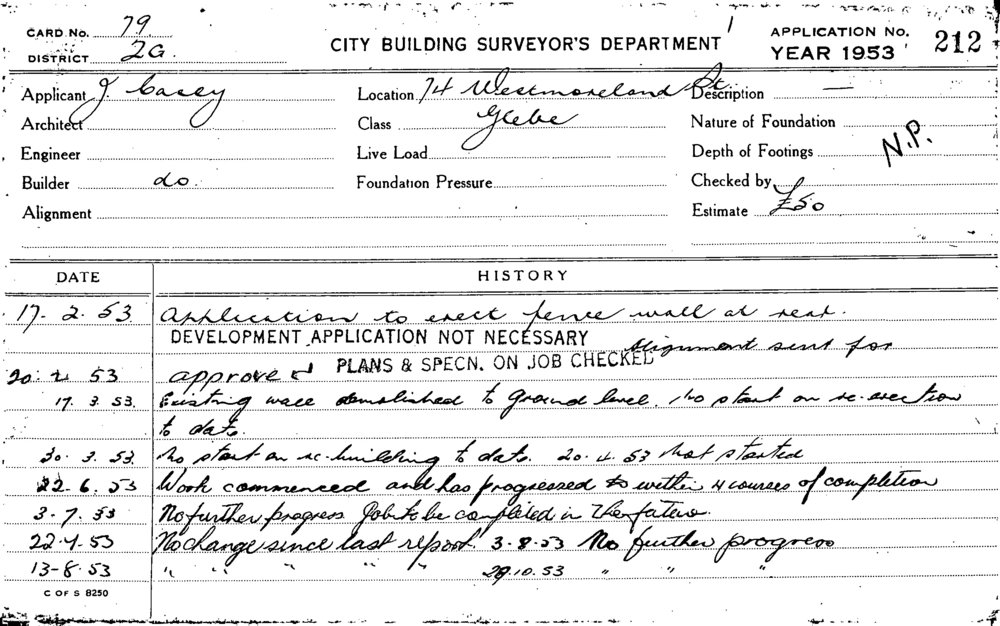 CARD No. 79
DISTRICT 2G
CITY BUILDING SURVEYOR'S DEPARTMENT
APPLICATION No. 212
YEAR 1953
Applicant J. Casey
Location 74 Westmoreland St.
Description —
Architect
Class Glebe
Nature of Foundation
Engineer
Live Load
Depth of Footings
N.P.
Builder do.
Foundation Pressure
Checked by
Alignment
Estimate £50
DATE HISTORY
17. 2. 53 Application to erect fence wall at rear.
DEVELOPMENT APPLICATION NOT NECESSARY
Alignment sent for
20. 2 53 approved PLANS & SPECN. ON JOB CHECKED
17. 3. 53. Existing wall demolished to ground level. No start on re-erection
to date.
30. 3. 53. No start on re-building to date. 20. 4. 53 Not started
22. 6. 53 Work commenced and has progressed to within 4 courses of completion
3. 7. 53 No further progress Job to be completed in the future.
22. 7. 53 No change since last report. 3. 8. 53 No further progress
13-8. 53 " " " " " 29.10. 53 " " "
C OF S 8250